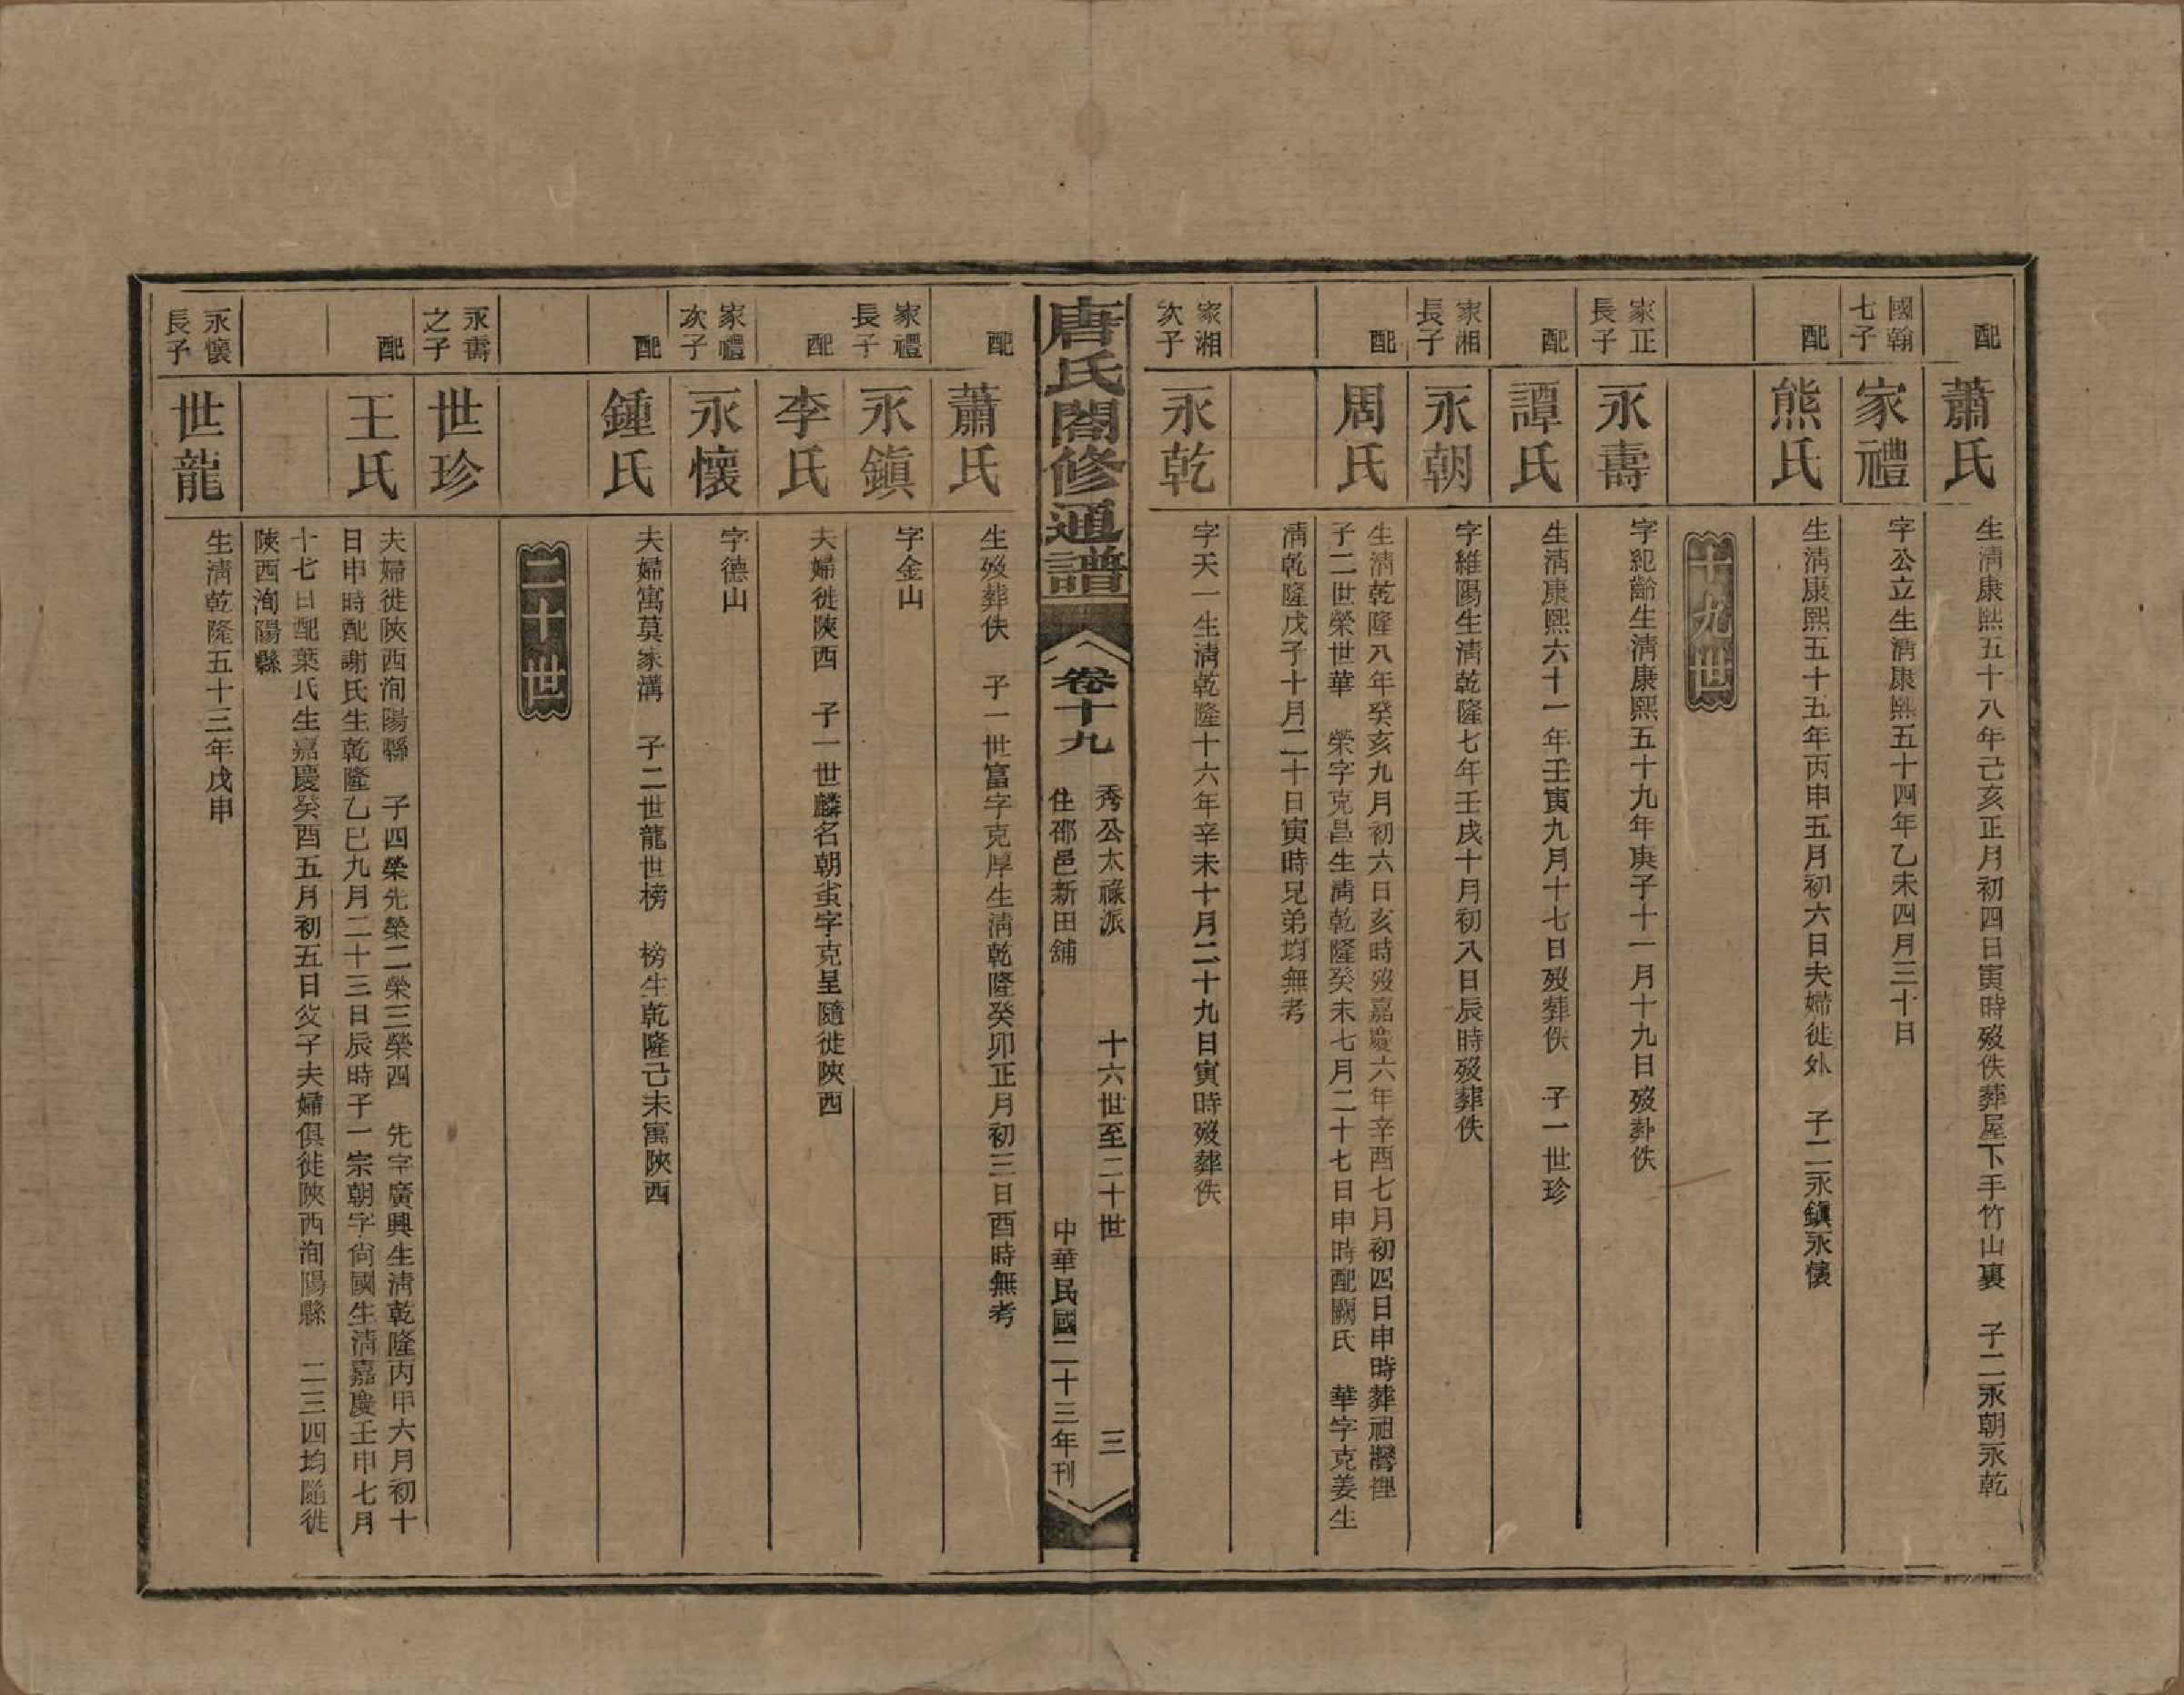 配
蕭氏
生清康熙五十八年己亥正月初四日寅時歿佚葬屋下手竹山裏　子二永朝永乾
國翰
七子
家禮
字公立生清康熙五十四年乙未四月三十日
配
熊氏
生清康熙五十五年丙申五月初六日夫婦徙外　子二永鎮永懷
十九世
家正
長子
永壽
字紀齡生清康熙五十九年庚子十一月十九日歿葬佚
配
譚氏
生清康熙六十一年壬寅九月十七日歿葬佚　子一世珍
家湘
長子
永朝
字維陽生清乾隆七年壬戌十月初八日辰時歿葬佚
配
周氏
生清乾隆八年癸亥九月初六日亥時歿嘉慶六年辛酉七月初四日申時葬祖灣裡
子二世榮世華　榮字克昌生清乾隆癸未七月二十七日申時配闕氏　華字克姜生
清乾隆戊子十月二十日寅時兄弟均無考
家湘
次子
永乾
字天一生清乾隆十六年辛未十月二十九日寅時歿葬佚
唐氏閤修通譜
卷十九
秀公太祿派
住邵邑新田舖
十六世至二十世
三
中華民國二十三年刊
配
蕭氏
生歿葬佚　子一世富字克厚生清乾隆癸卯正月初三日酉時無考
家禮
長子
永鎮
字金山
配
李氏
夫婦徙陝西　子一世麟名朝蚩字克呈隨徙陝西
家禮
次子
永懷
字德山
配
鍾氏
夫婦寓莫家溝　子二世龍世榜　榜生乾隆己未寓陝西
二十世
永壽
之子
世珍
配
王氏
夫婦徙陝西洵陽縣　子四榮先榮二榮三榮四　先字廣興生清乾隆丙申六月初十
日申時配謝氏生乾隆乙巳九月二十三日辰時子一宗朝字尙國生清嘉慶壬申七月
十七日配葉氏生嘉慶癸酉五月初五日父子夫婦俱徙陝西洵陽縣　二三四均隨徙
陝西洵陽縣
永懷
長子
世龍
生清乾隆五十三年戊申